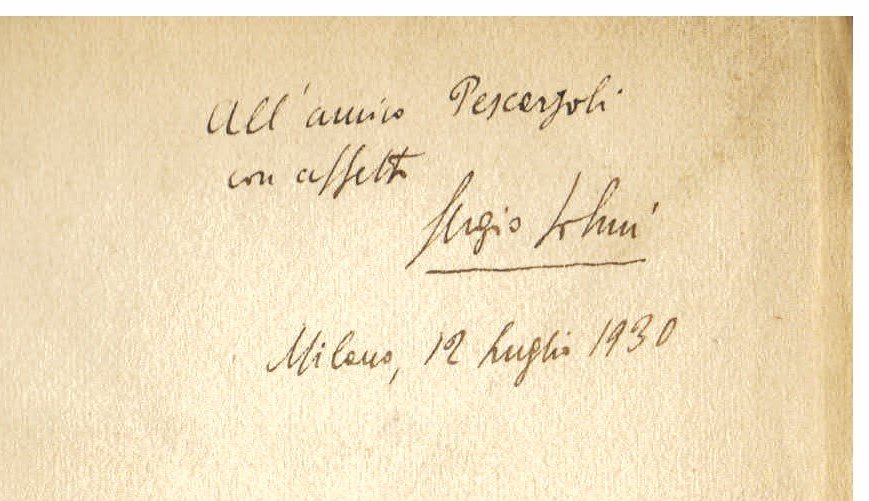 All'amico Pescarzoli
con affetto
Sergio Solmi
Milano, 12 Luglio 1930